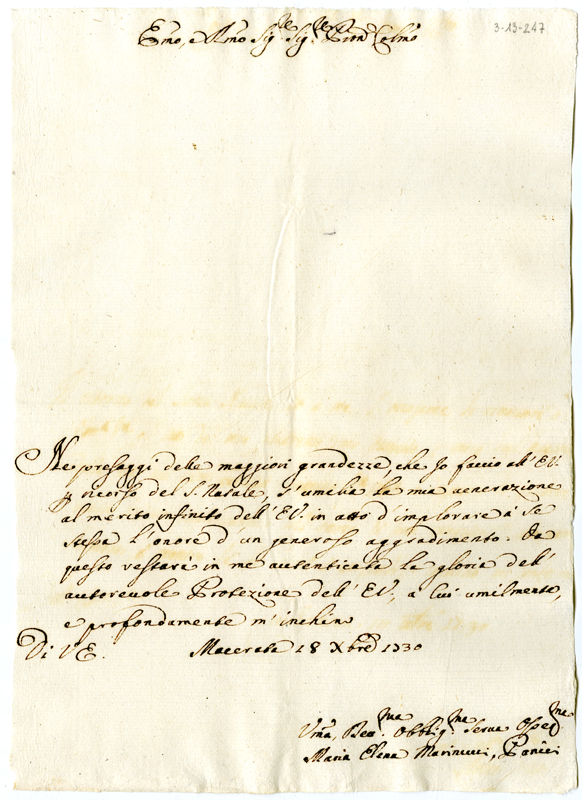 3-13-247
Emo, e Rmo Sig.re Sig.re Pron. Colmo
Ne presaggi delle maggiori grandezze, che Io faccio all' EV.
p ricorso del S. Natale, s'umilia la mia venerazione
al merito infinito dell' EV. in atto d'implorare à se
stessa l'onore d'un generoso aggradimento. Da
questo restarà in me autenticata la gloria dell'
autorevole Protezione dell' EV., a cui umilmente,
e profondamente m'inchino
Di V E. Macerata 18 Xbre 1730
Vma, Dev.ma Obblig.ma Serva Osseq.ma
Maria Elena Marinucci,